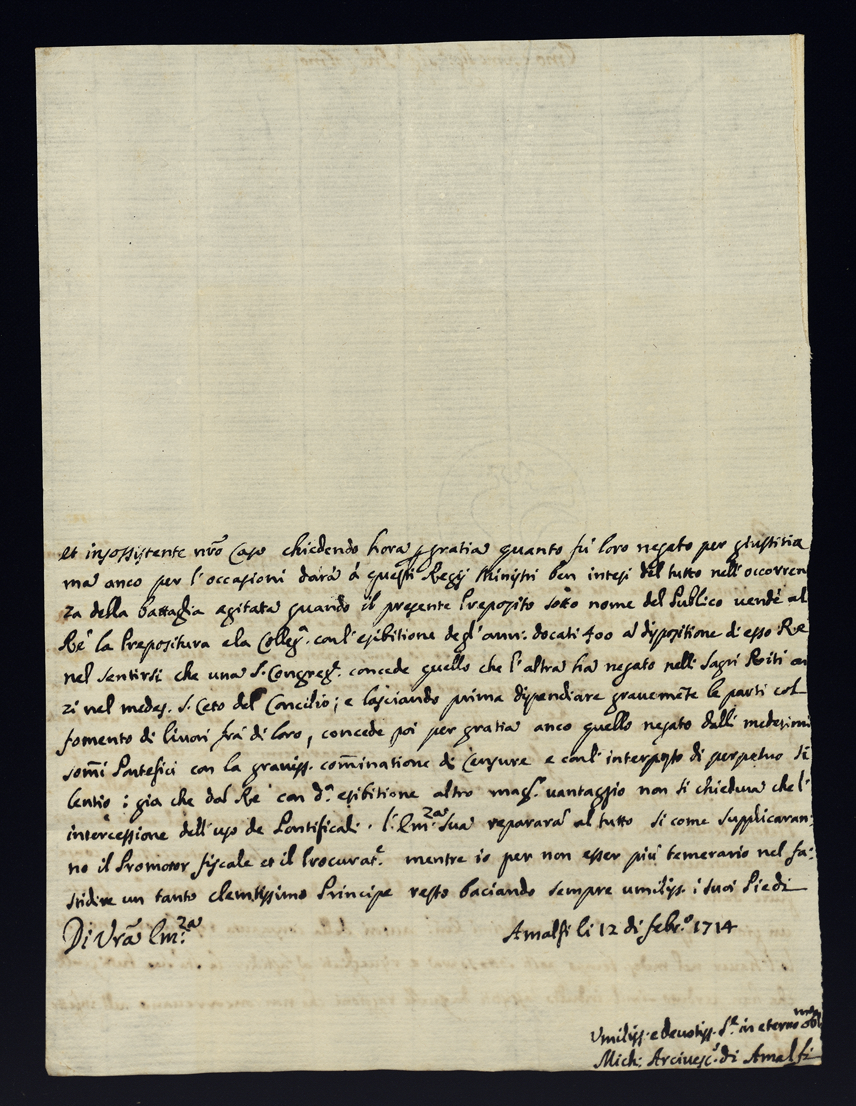 et insossistente nr̃o Caso chiedendo hora p gratia quanto fù loro negato per giustitia
ma anco per l'occasioni darà à questi Regij Ministri ben intesi del tutto nell'occorren
za della battaglia agitata quando il presente Preposito sotto nome del Publico vendè al
Rè la Prepositura e la Colleg.ª con l'esibitione degl'ann: docati 400 a dispositione di esso Rè
nel sentirsi che una S. Congreg.ª concede quello che l'altra ha negato nelli Sagri Riti an
zi nel medes. S. Ceto del Concilio; e lasciando prima dispendiare gravemẽte le parti col
fomento di livori frà di loro, concede poi per gratia anco quello negato dalli medesimi
som̃i Pontefici con la graviss. com̃inatione di Censure e coll' interposto di perpetuo si
lentio; gia che dal Rè con d.ª esibitione altro mag.r vantaggio non si chiedeva che l'
intercessione dell'uso de Pontificali. l'Em.za Sua repararà al tutto si come supplicaran
no il Promotor fiscale et il Procurat.e mentre io per non esser più temerario nel fa:
stidire un tanto clementissimo Principe resto baciando sempre umiliss. i suoi Piedi
Di Vr̃a Em.za
Amalfi li 12 di Febr.o 1714
Umiliss. e devotiss. S.re in eterno obl.mo
Mich: Arcivesc.o di Amalfi